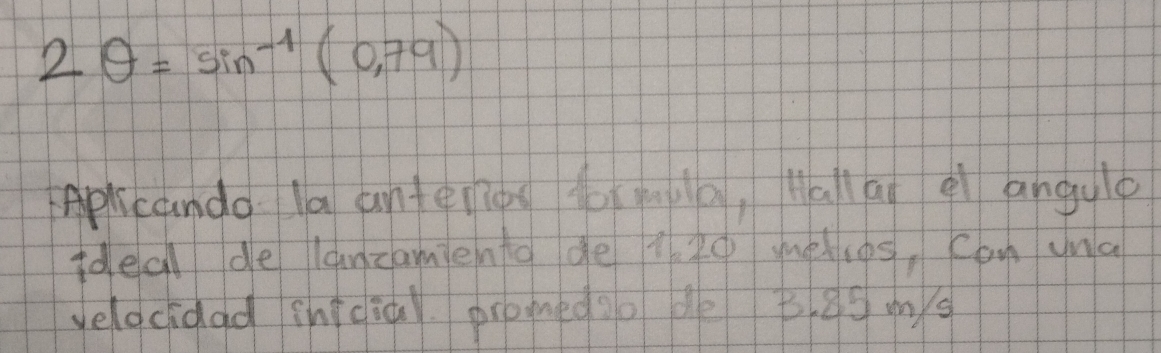 2 θ = sin⁻¹ (0,79)
Aplicando la anterior formula, Hallar el angulo
ideal de lanzamiento de 1.20 metros, Con una
velocidad inicial promedio de 3.85 m/s